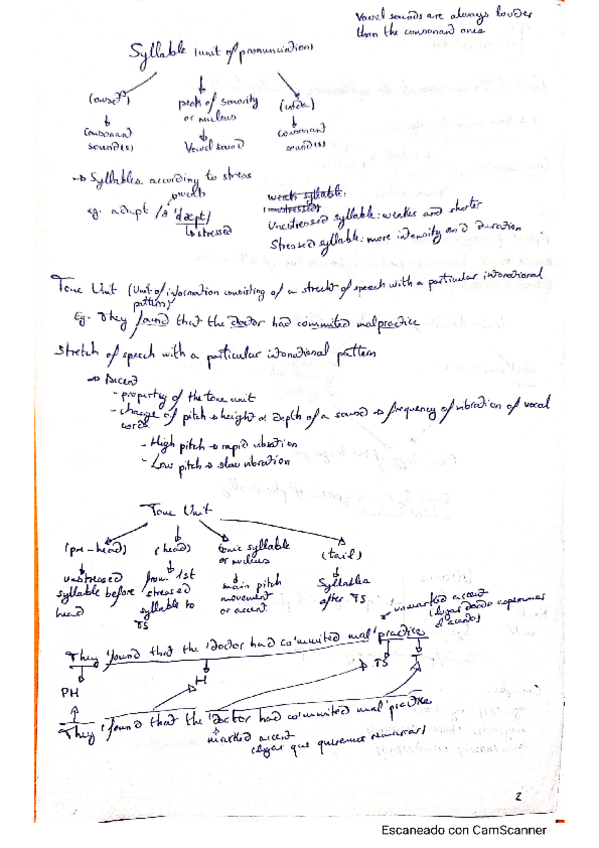 Vowel sounds are always louder
than the consonant ones
Syllable (unit of pronunciation)
(onset) peak of sonority (coda)
or nucleus
Consonant Vowel sound consonant
sound(s) sound(s)
→ Syllables according to stress
weak weak syllable:
(unstressed)
eg. adapt /ə'dæpt/ Unstressed syllable: weaker and shorter
stressed Stressed syllable: more intensity and duration
Tone Unit (Unit of information consisting of a strecht of speech with a particular intonational
pattern)
Eg. They found that the doctor had commited malpractice
Stretch of speech with a particular intonational pattern
→ Accent
- property of the tone unit
- change of pitch → height or depth of a sound → frequency of vibration of vocal
cords
- High pitch → rapid vibration
- Low pitch → slow vibration
Tone Unit
(pre-head) (head) tonic syllable (tail)
or nucleus
unstressed from 1st main pitch Syllables
syllable before stressed movement after TS
head syllable to or accent
TS
unmarked accent
(lugar donde esperamos
el acento)
They 'found that the 'doctor had co'mmited mal'practice
PH H TS T
They 'found that the 'doctor had co'mmited mal'practice
marked accent
(lugar que queremos remarcar)
2
Escaneado con CamScanner